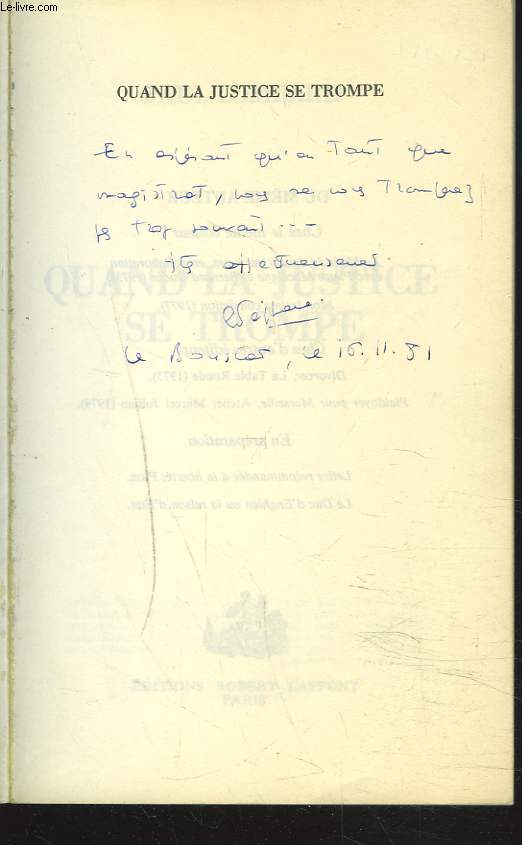 Le-livre.com
QUAND LA JUSTICE SE TROMPE
En espérant qu'en Tant que
magistrat, vous ne vous Trompez
pas trop souvent ...
Très affectueusement
Le Bouscat, le 16.11.81
QUAND LA JUSTICE
SE TROMPE
DU MÊME AUTEUR
Divorcer, La Table Ronde (1975).
Plaidoyer pour Marseille, Atelier Marcel Jullian (1979).
En préparation
Lettre recommandée à la liberté, Plon.
Le Duc d'Enghien ou la raison d'État.
ÉDITIONS ROBERT LAFFONT
PARIS